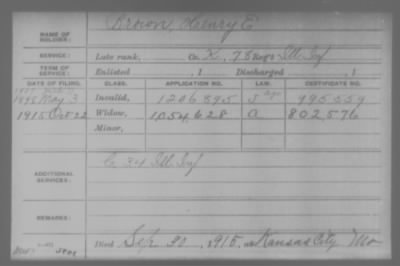 Brown, Henry E
NAME OF SOLDIER:
SERVICE: Late rank, Co. K, 78 Reg't Ill Inf
TERM OF SERVICE: Enlisted , 1 Discharged , 1
DATE OF FILING. CLASS. APPLICATION NO. LAW. CERTIFICATE NO.
1898 May 3 Invalid, 1206895 995559
1915 Oct 22 Widow, 1054628 a 802576
Minor,
C 34 Ill Inf
ADDITIONAL SERVICES:
REMARKS:
Died Sep 30, 1915, at Kansas City Mo